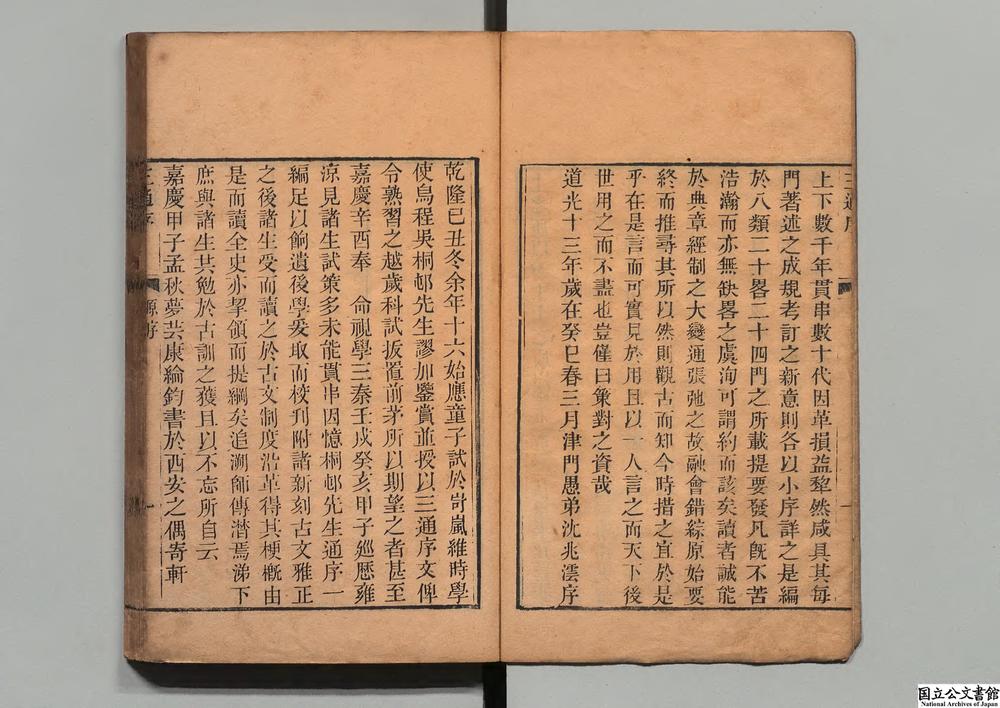 三通序
上下數千年貫串數十代因革損益犂然咸具其每
門著述之成規考訂之新意則各以小序詳之是編
於八類二十畧二十四門之所載提要發凡旣不苦
浩瀚而亦無缺畧之虞洵可謂約而該矣讀者誠能
於典章經制之大變通張弛之故融會錯綜原始要
終而推尋其所以然則觀古而知今時措之宜於是
乎在是言而可實見於用且以一人言之而天下後
世用之而不盡也豈僅曰策對之資哉
道光十三年歲在癸巳春三月津門愚弟沈兆澐序
一
乾隆己丑冬余年十六始應童子試於岢嵐維時學
使烏程吳桐邨先生謬加鑒賞並授以三通序文俾
令熟習之越歲科試拔置前茅所以期望之者甚至
嘉慶辛酉奉 命視學三秦壬戌癸亥甲子廵歷雍
涼見諸生試策多未能貫串因憶桐邨先生通序一
編足以餉遺後學爰取而校刋附諸新刻古文雅正
之後諸生受而讀之於古文制度沿革得其梗槪由
是而讀全史亦挈領而提綱矣追溯師傳潸焉涕下
庶與諸生共勉於古訓之獲且以不忘所自云
嘉慶甲子孟秋夢芸康綸鈞書於西安之偶寄軒
三通序
原序
一
国立公文書館
National Archives of Japan